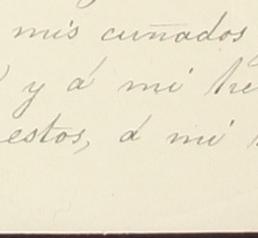 mis cuñados
y á mi he
estos, á mi